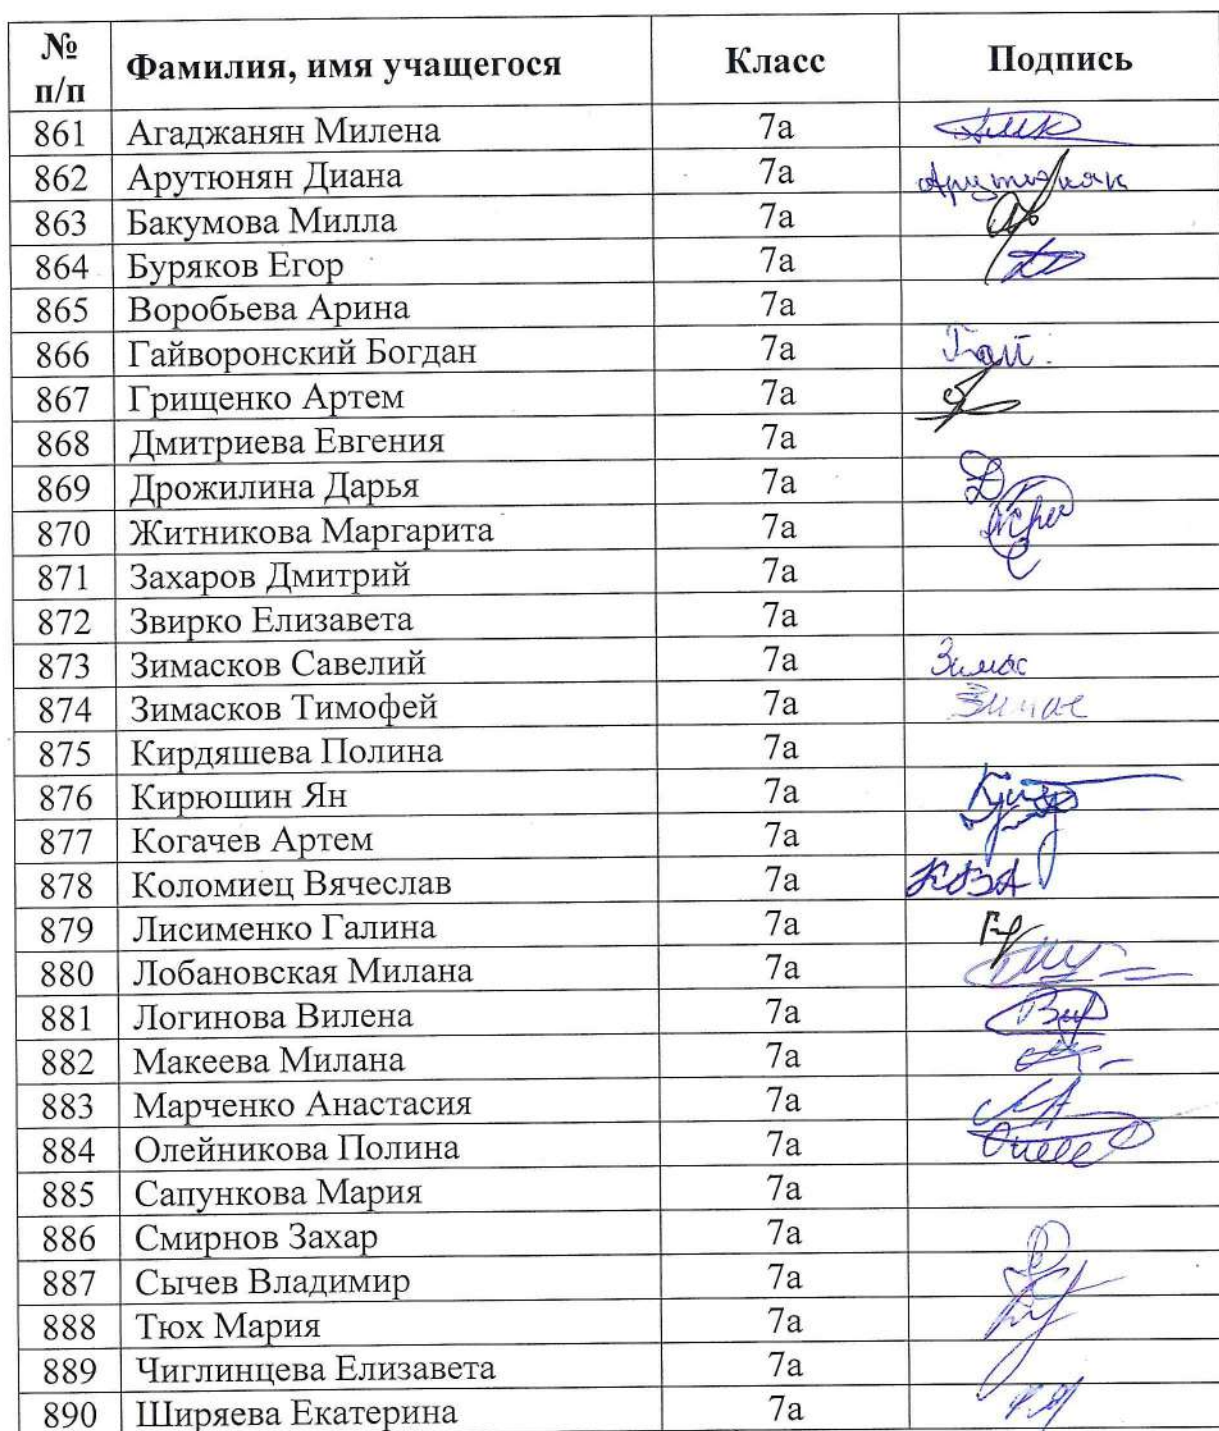 № п/п Фамилия, имя учащегося Класс Подпись
861 Агаджанян Милена 7а
862 Арутюнян Диана 7а Арутюнян
863 Бакумова Милла 7а
864 Буряков Егор 7а
865 Воробьева Арина 7а
866 Гайворонский Богдан 7а
867 Грищенко Артем 7а
868 Дмитриева Евгения 7а
869 Дрожилина Дарья 7а
870 Житникова Маргарита 7а
871 Захаров Дмитрий 7а
872 Звирко Елизавета 7а
873 Зимасков Савелий 7а Зимас
874 Зимасков Тимофей 7а Зимас
875 Кирдяшева Полина 7а
876 Кирюшин Ян 7а
877 Когачев Артем 7а
878 Коломиец Вячеслав 7а
879 Лисименко Галина 7а
880 Лобановская Милана 7а
881 Логинова Вилена 7а
882 Макеева Милана 7а
883 Марченко Анастасия 7а
884 Олейникова Полина 7а
885 Сапункова Мария 7а
886 Смирнов Захар 7а
887 Сычев Владимир 7а
888 Тюх Мария 7а
889 Чиглинцева Елизавета 7а
890 Ширяева Екатерина 7а